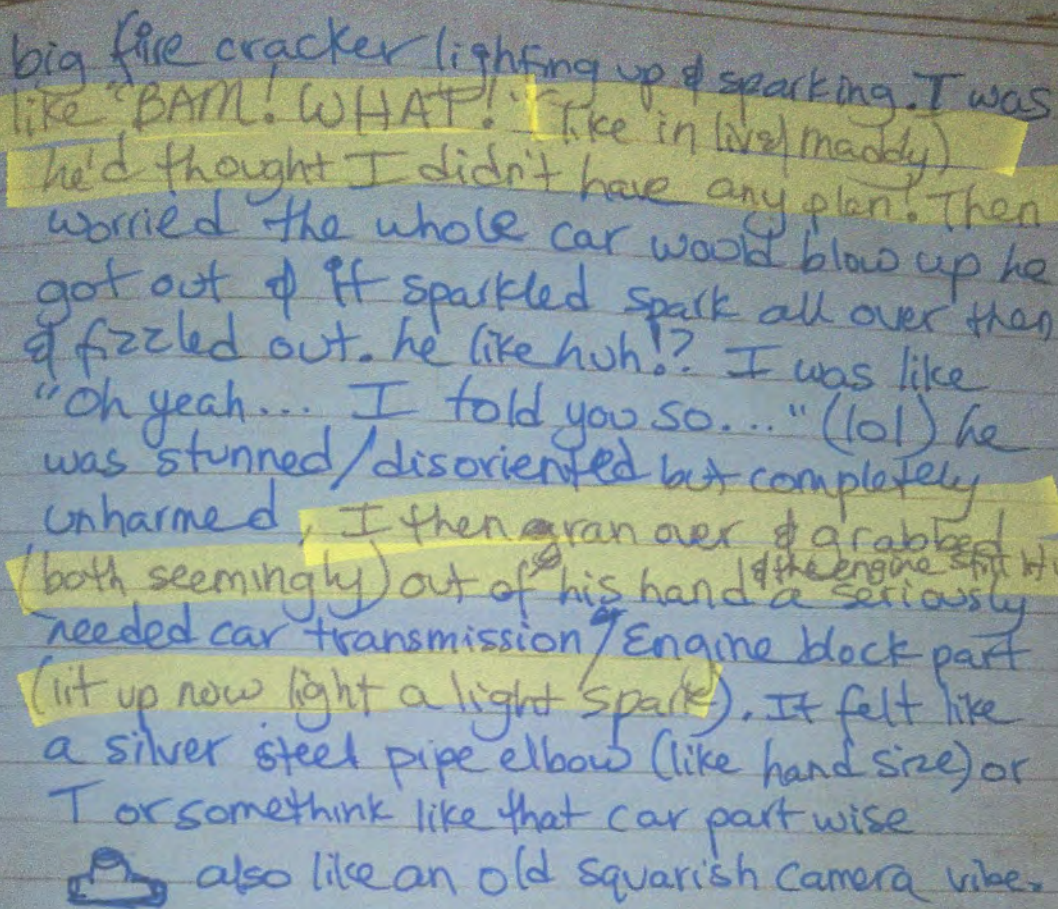 big fire cracker lighting up & sparking. I was
like "BAM! WHAT!" (like in live/maddy)
he'd thought I didn't have any plan! Then
worried the whole car would blow up he
got out & it sparkled spark all over then
& fizzled out. he like huh!? I was like
"Oh yeah... I told you so..." (lol) he
was stunned/disoriented but completely
unharmed, I then ran over & grabbed
(both seemingly) out of his hand & the engine still a seriously
needed car transmission/Engine block part
(lit up now light a light spark). It felt like
a silver steel pipe elbow (like hand size) or
T or somethink like that car part wise
also like an old squarish camera vibe.